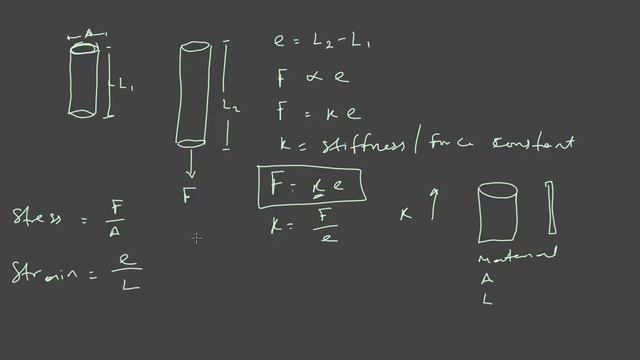 A
L₁
L₂
F
e = L₂-L₁
F ∝ e
F = κ e
κ = stiffness / force constant
F = κ e
κ = F/e
Stress = F/A
Strain = e/L
κ ↑
Material
A
L